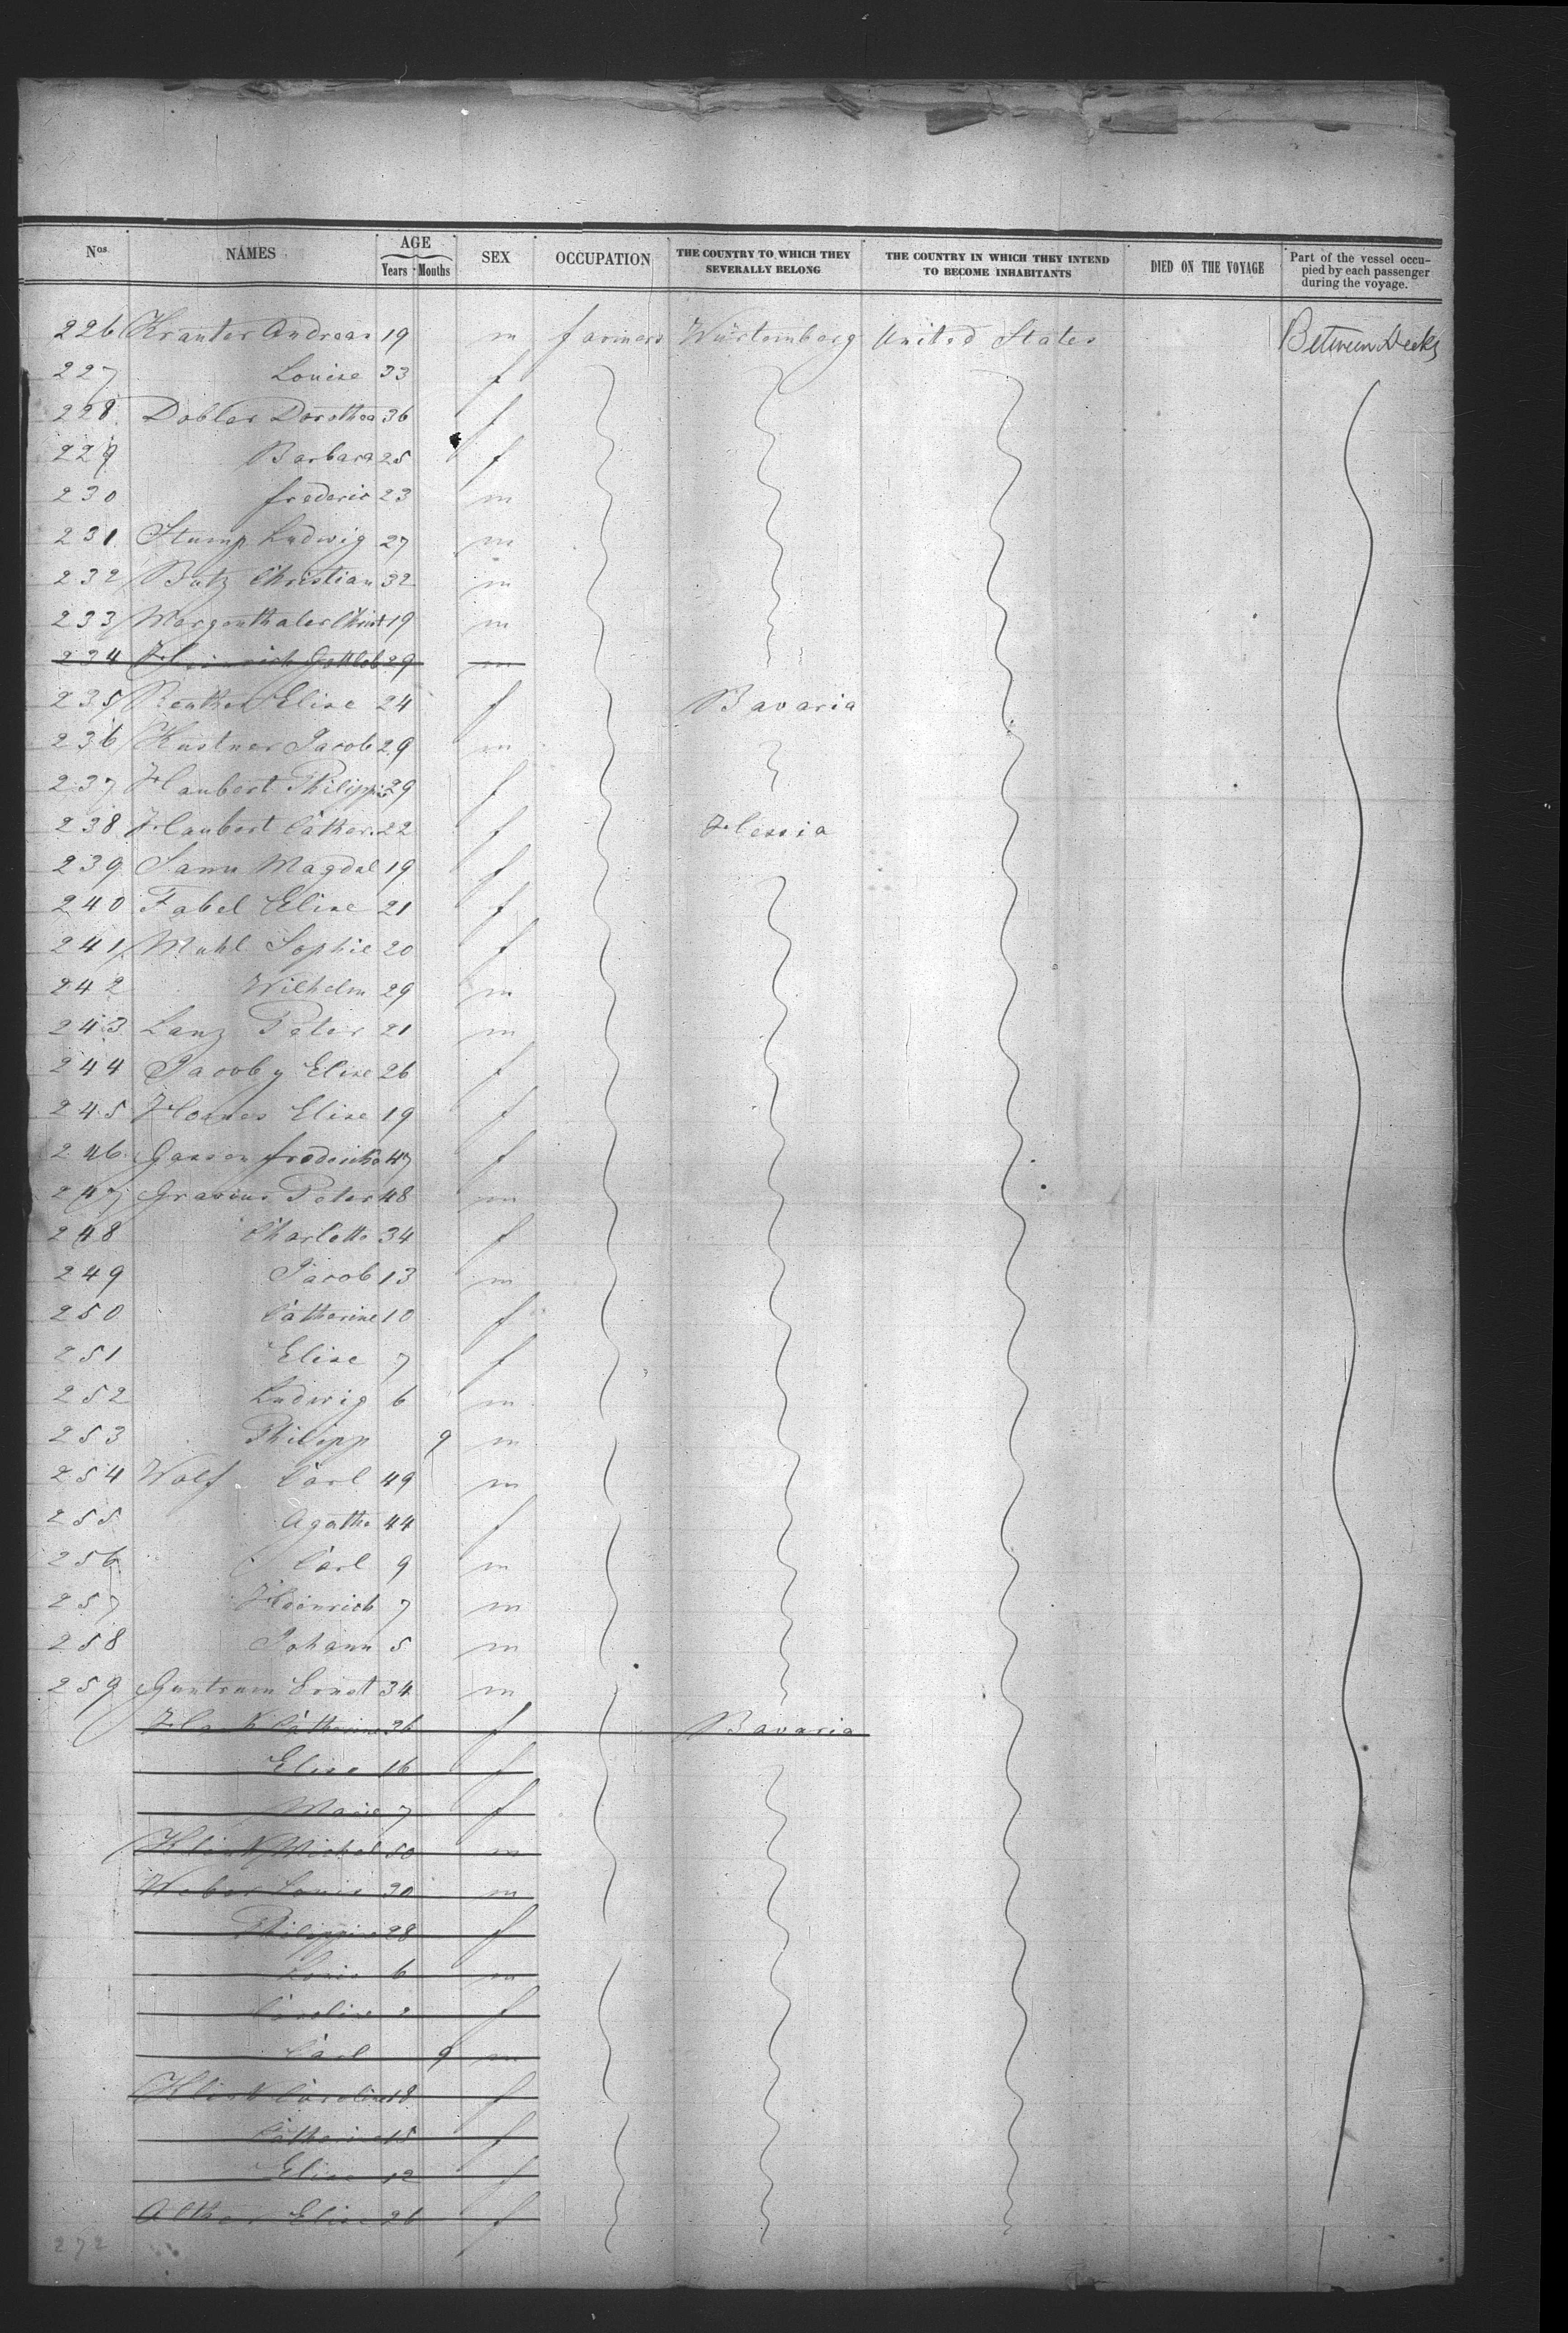 Nos. NAMES AGE Years Months SEX OCCUPATION THE COUNTRY TO WHICH THEY SEVERALLY BELONG THE COUNTRY IN WHICH THEY INTEND TO BECOME INHABITANTS DIED ON THE VOYAGE Part of the vessel occupied by each passenger during the voyage.
226 Krauter Andreas 19 m farmers Würtemberg United States Between Decks
227 Louise 33 f
228 Dobler Dorothea 36 f
229 Barbara 25 f
230 frederic 23 m
231 Stump Ludwig 27 m
232 Butz Christian 32 m
233 Mergenthaler Christ 19 m
234 Heinrich Gottlob 29 m
235 Elise 24 f Bavaria
236 Kustner Jacob 29 m
237 Haubert Philippi 29 f
238 Haubert Cather. 22 f Hessia
239 Magdal 19 f
240 Fabel Elise 21 f
241 Muhl Sophie 20 f
242 Wilhelm 29 m
243 Lanz Peter 21 m
244 Jacoby Elise 26 f
245 Elise 19 f
246 frederika 47 f
247 Gravius Peter 48 m
248 Charlotte 34 f
249 Jacob 13 m
250 Catherine 10 f
251 Elise 7 f
252 Ludwig 6 m
253 Philipp 9 m
254 Wolf Carl 49 m
255 Agathe 44 f
256 Carl 9 m
257 Heinrich 7 m
258 Johann 5 m
259 Guntrum Ernst 34 m
Catherine 36 f Bavaria
Elise 16 f
Marie 7 f
Klink Michel 50 m
Weber Louis 30 m
Philippine 28 f
Louis 6 m
Caroline 2 f
Carl 9 m
Klink Caroline 18 f
Catherine 15 f
Elise 12 f
Elise 26 f
272